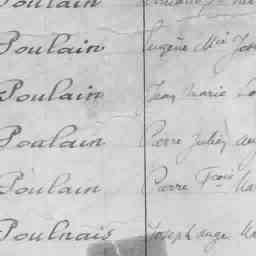 Poulain
Poulain Eugène Mie Jos
Poulain Jean Marie
Poulain Pierre Julien Aug
Poulain Pierre Fçois Mar
Poulnais Joseph Ange Ma